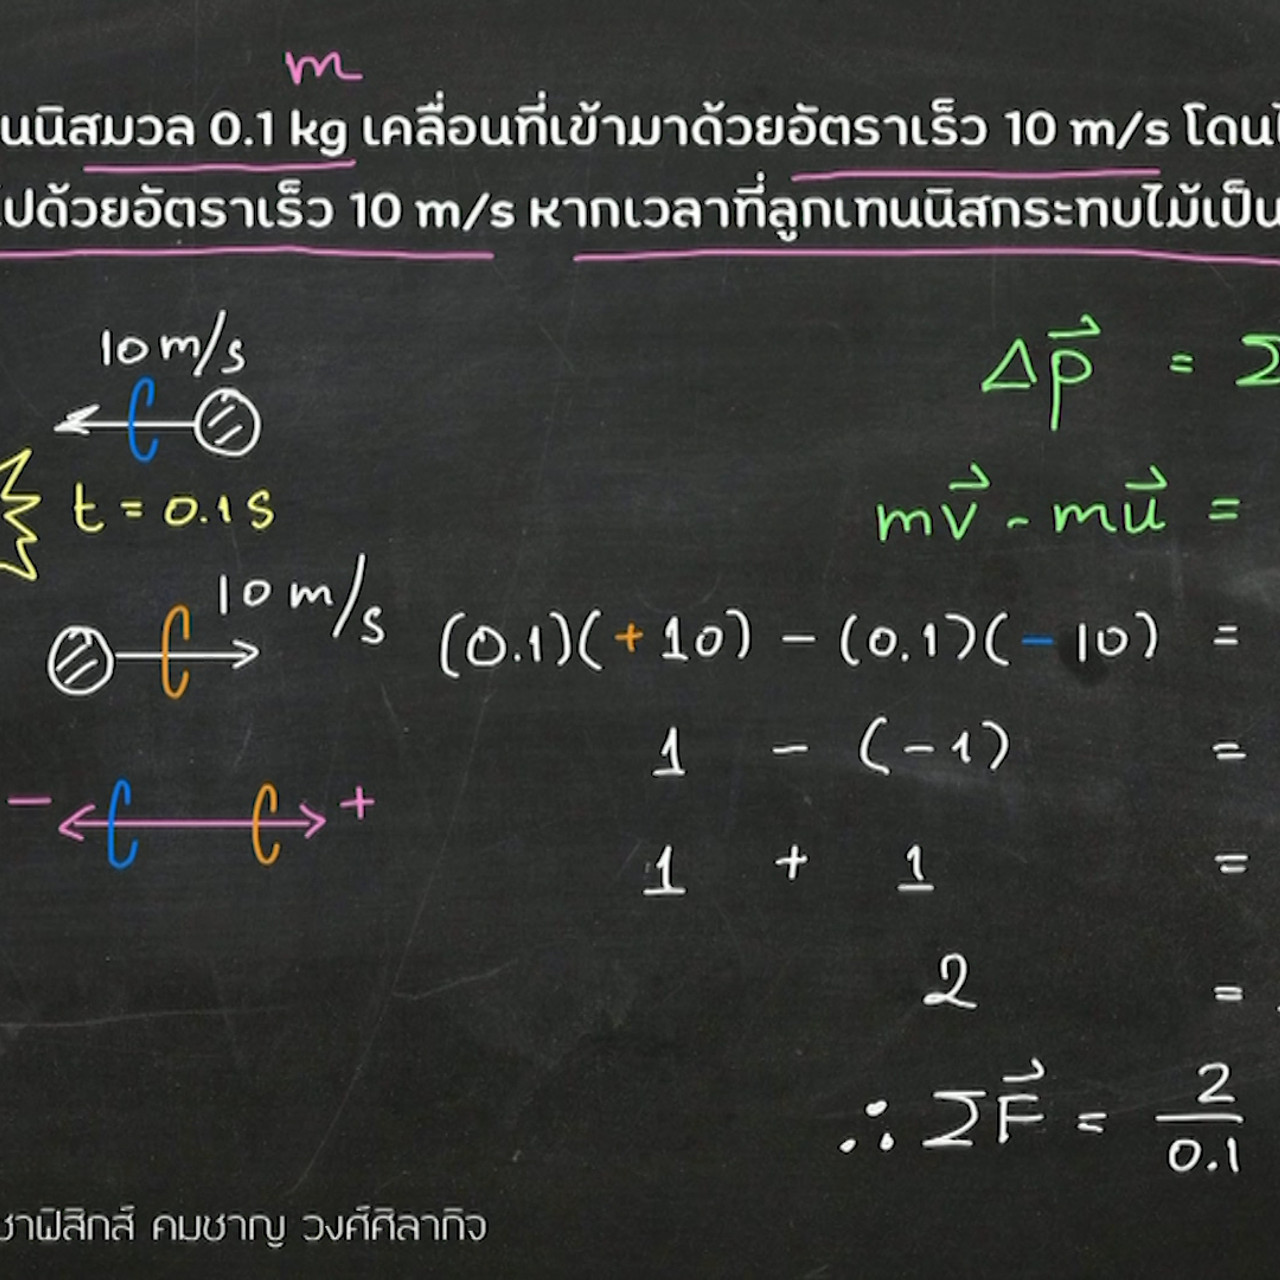 m
นนิสมวล 0.1 kg เคลื่อนที่เข้ามาด้วยอัตราเร็ว 10 m/s โดนไ
ปด้วยอัตราเร็ว 10 m/s หากเวลาที่ลูกเทนนิสกระทบไม้เป็น
10 m/s
t = 0.1 s
10 m/s
− +
Δp⃗ = Σ
mv⃗ - mu⃗ =
(0.1)(+10) − (0.1)(−10) =
1 − (−1) =
1 + 1 =
2 =
∴ ΣF⃗ = 2/0.1
ชาฟิสิกส์ คมชาญ วงศ์ศิลากิจ